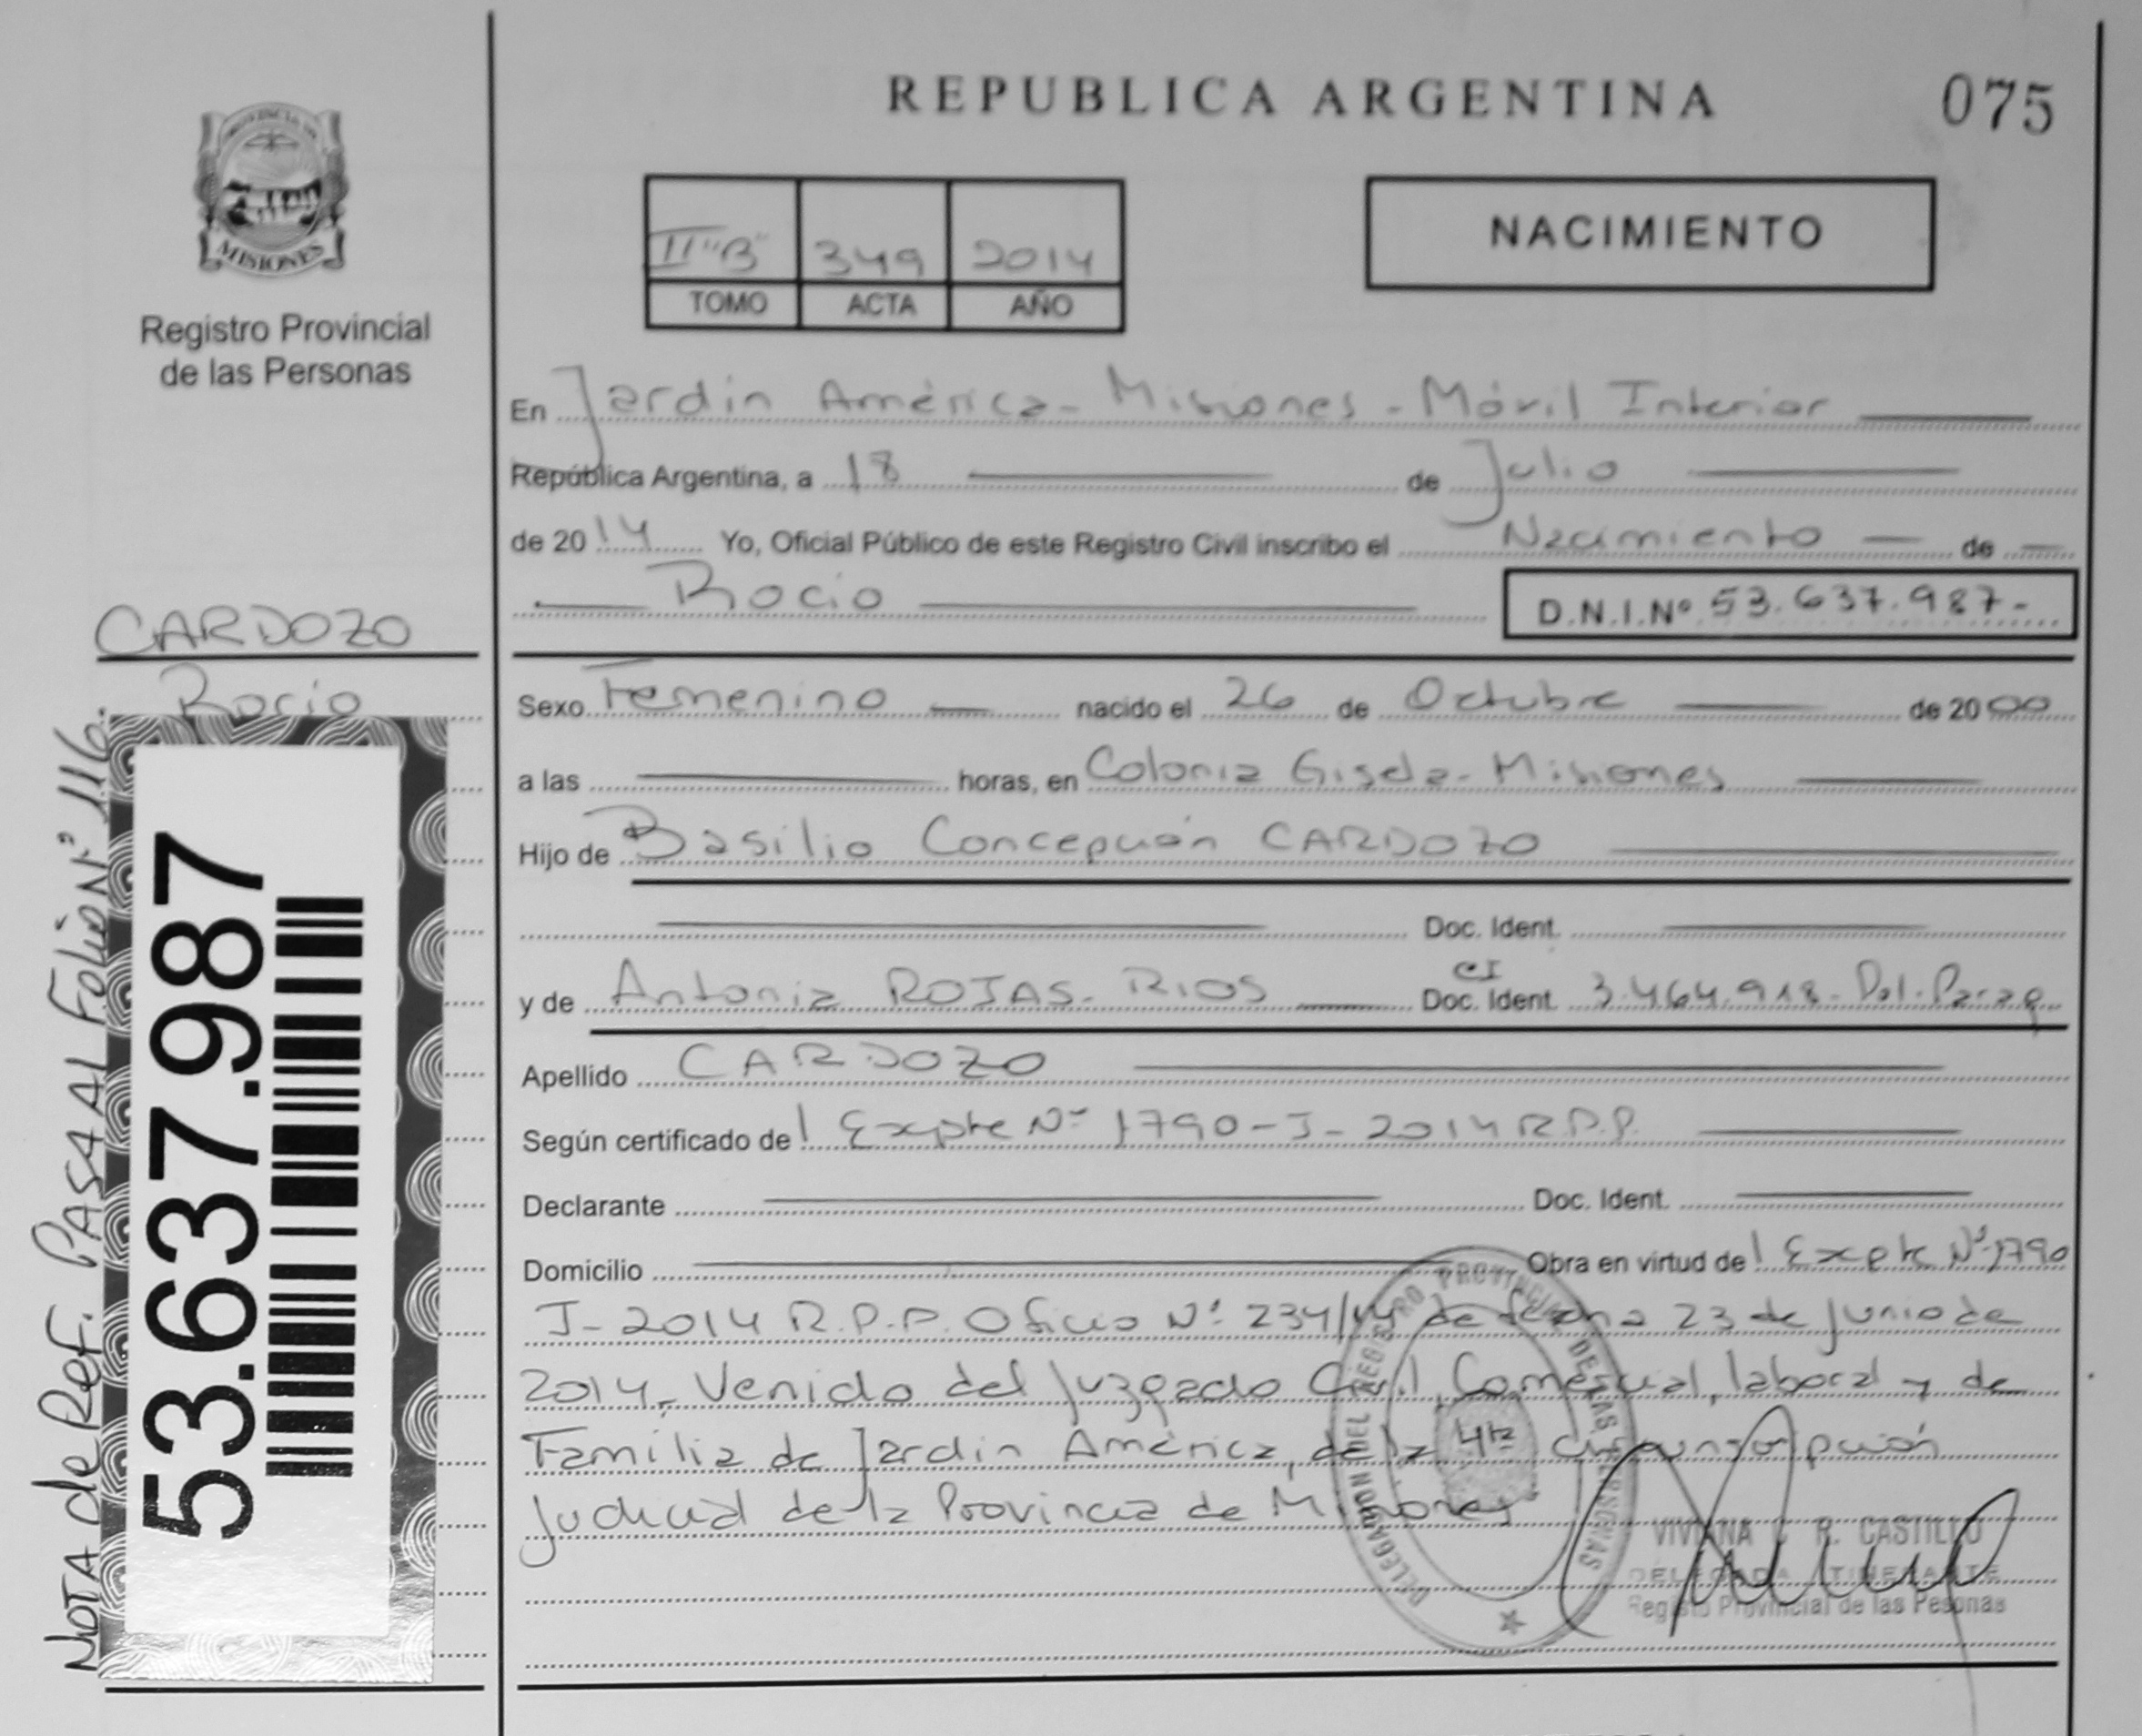 REPUBLICA ARGENTINA
075
PROVINCIA DE
MISIONES
Registro Provincial
de las Personas
II "B" 349 2014
TOMO ACTA AÑO
NACIMIENTO
En Jardín América - Misiones - Móvil Interior
República Argentina, a 18 de Julio
de 2014 Yo, Oficial Público de este Registro Civil inscribo el Nacimiento de
Rocio D.N.I.Nº 53.637.987-
CARDOZO
Rocio
NOTA de Ref. PASA AL Folio Nº 116.
53.637.987
Sexo Femenino nacido el 26 de Octubre de 2000
a las horas, en Colonia Gisela - Misiones
Hijo de Basilio Concepción CARDOZO
Doc. Ident.
CI
y de Antonia ROJAS - RIOS Doc. Ident. 3.464.918 - Pol. Parag
Apellido CARDOZO
Según certificado de l Expte Nº 1790 - J - 2014 R.P.P.
Declarante Doc. Ident.
Domicilio Obra en virtud de l Expte Nº 1790
J - 2014 R.P.P. Oficio Nº 234/14 de fecha 23 de Junio de
2014, Venido del Juzgado Civil, Comercial, laboral y de
Familia de Jardín América, de la 4ta circunscripción
Judicial de la Provincia de Misiones
DELEGACION DEL REGISTRO PROVINCIAL DE LAS PERSONAS
VIVIANA C R. CASTILLO
DELEGADA ITINERANTE
Registro Provincial de las Pesonas